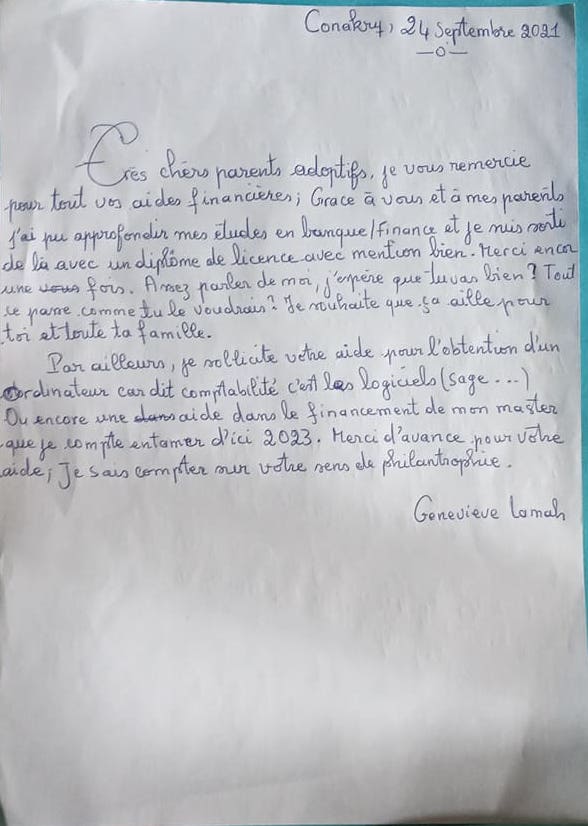 Conakry, 24 Septembre 2021
—o—
Très chèrs parents adoptifs, je vous remercie
pour tout vos aides financières; Grace à vous et à mes parents
j'ai pu approfondir mes études en banque/finance et je suis sorti
de là avec un diplôme de licence avec mention bien. Merci encor
une vous fois. Assez parler de moi, j'espère que tu vas bien? Tout
se passe comme tu le voudrais? Je souhaite que ça aille pour
toi et toute ta famille.
Par ailleurs, je sollicite votre aide pour l'obtention d'un
ordinateur car dit comptabilité c'est les logiciels (sage...)
Ou encore une dans aide dans le financement de mon master
que je compte entamer d'ici 2023. Merci d'avance pour votre
aide; Je sais compter sur votre sens de philantrophie.
Genevieve Lamah